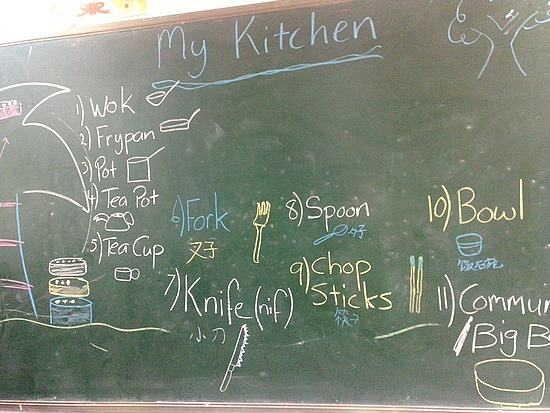 My Kitchen
1) Wok
2) Frypan
3) Pot
4) Tea Pot
5) Tea Cup
6) Fork
叉子
7) Knife (nif)
小刀
8) Spoon
子
9) Chop
Sticks
筷子
10) Bowl
11) Commun
Big B